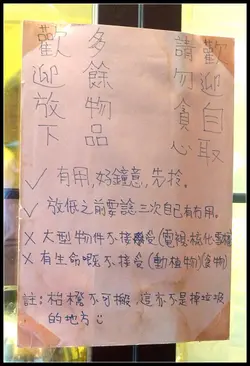 歡迎自取
請勿貪心
多餘物品
歡迎放下
✓ 有用,好鐘意,先拎。
✓ 放低之前要諗三次自己有冇用。
✗ 大型物件不接受(電視‧梳化‧
✗ 有生命嘅不接受(動植物)(食物)
註:枱櫈不可搬,這亦不是掉垃圾
的地方☺